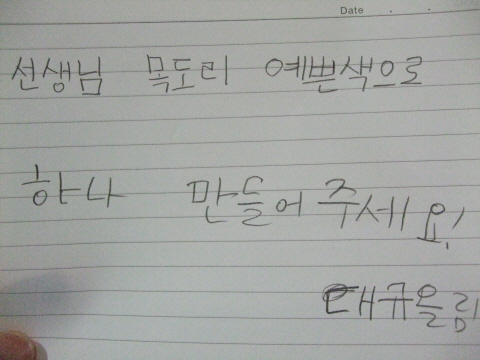 Date . .
선생님 목도리 예쁜색으로
하나 만들어 주세요!
태규올림